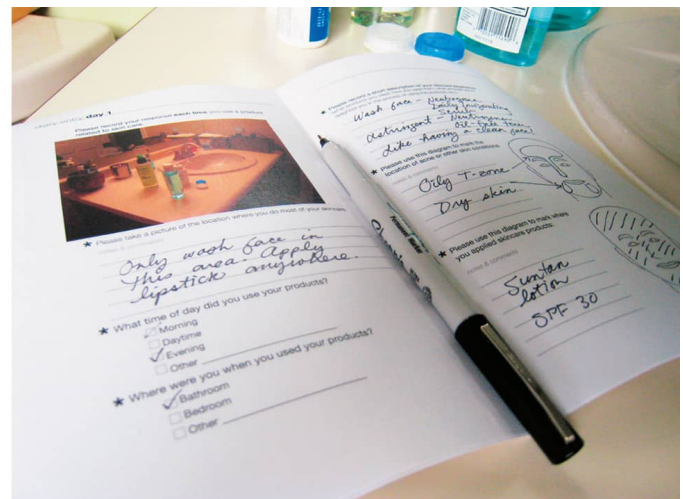 diary entry day 1
Please record your response each time you use a product
related to skin care.
★ Please take a picture of the location where you do most of your skincare
notes & comments
Only wash face in
this area. Apply
lipstick anywhere.
★ What time of day did you use your products?
Morning
Daytime
Evening
Other
★ Where were you when you used your products?
Bathroom
Bedroom
Other
★ Please record a short description of your
Wash face - Neutrogena
Daily Invigorating
Scrub
Neutrogena
Oil-free
Like having a clean face!
★ Please use this diagram to mark the
location of acne or other skin conditions
notes & comments
Oily T-zone
Dry skin
★ Please use this diagram to mark where
you applied skincare products:
notes & comments
Suntan
lotion
SPF 30